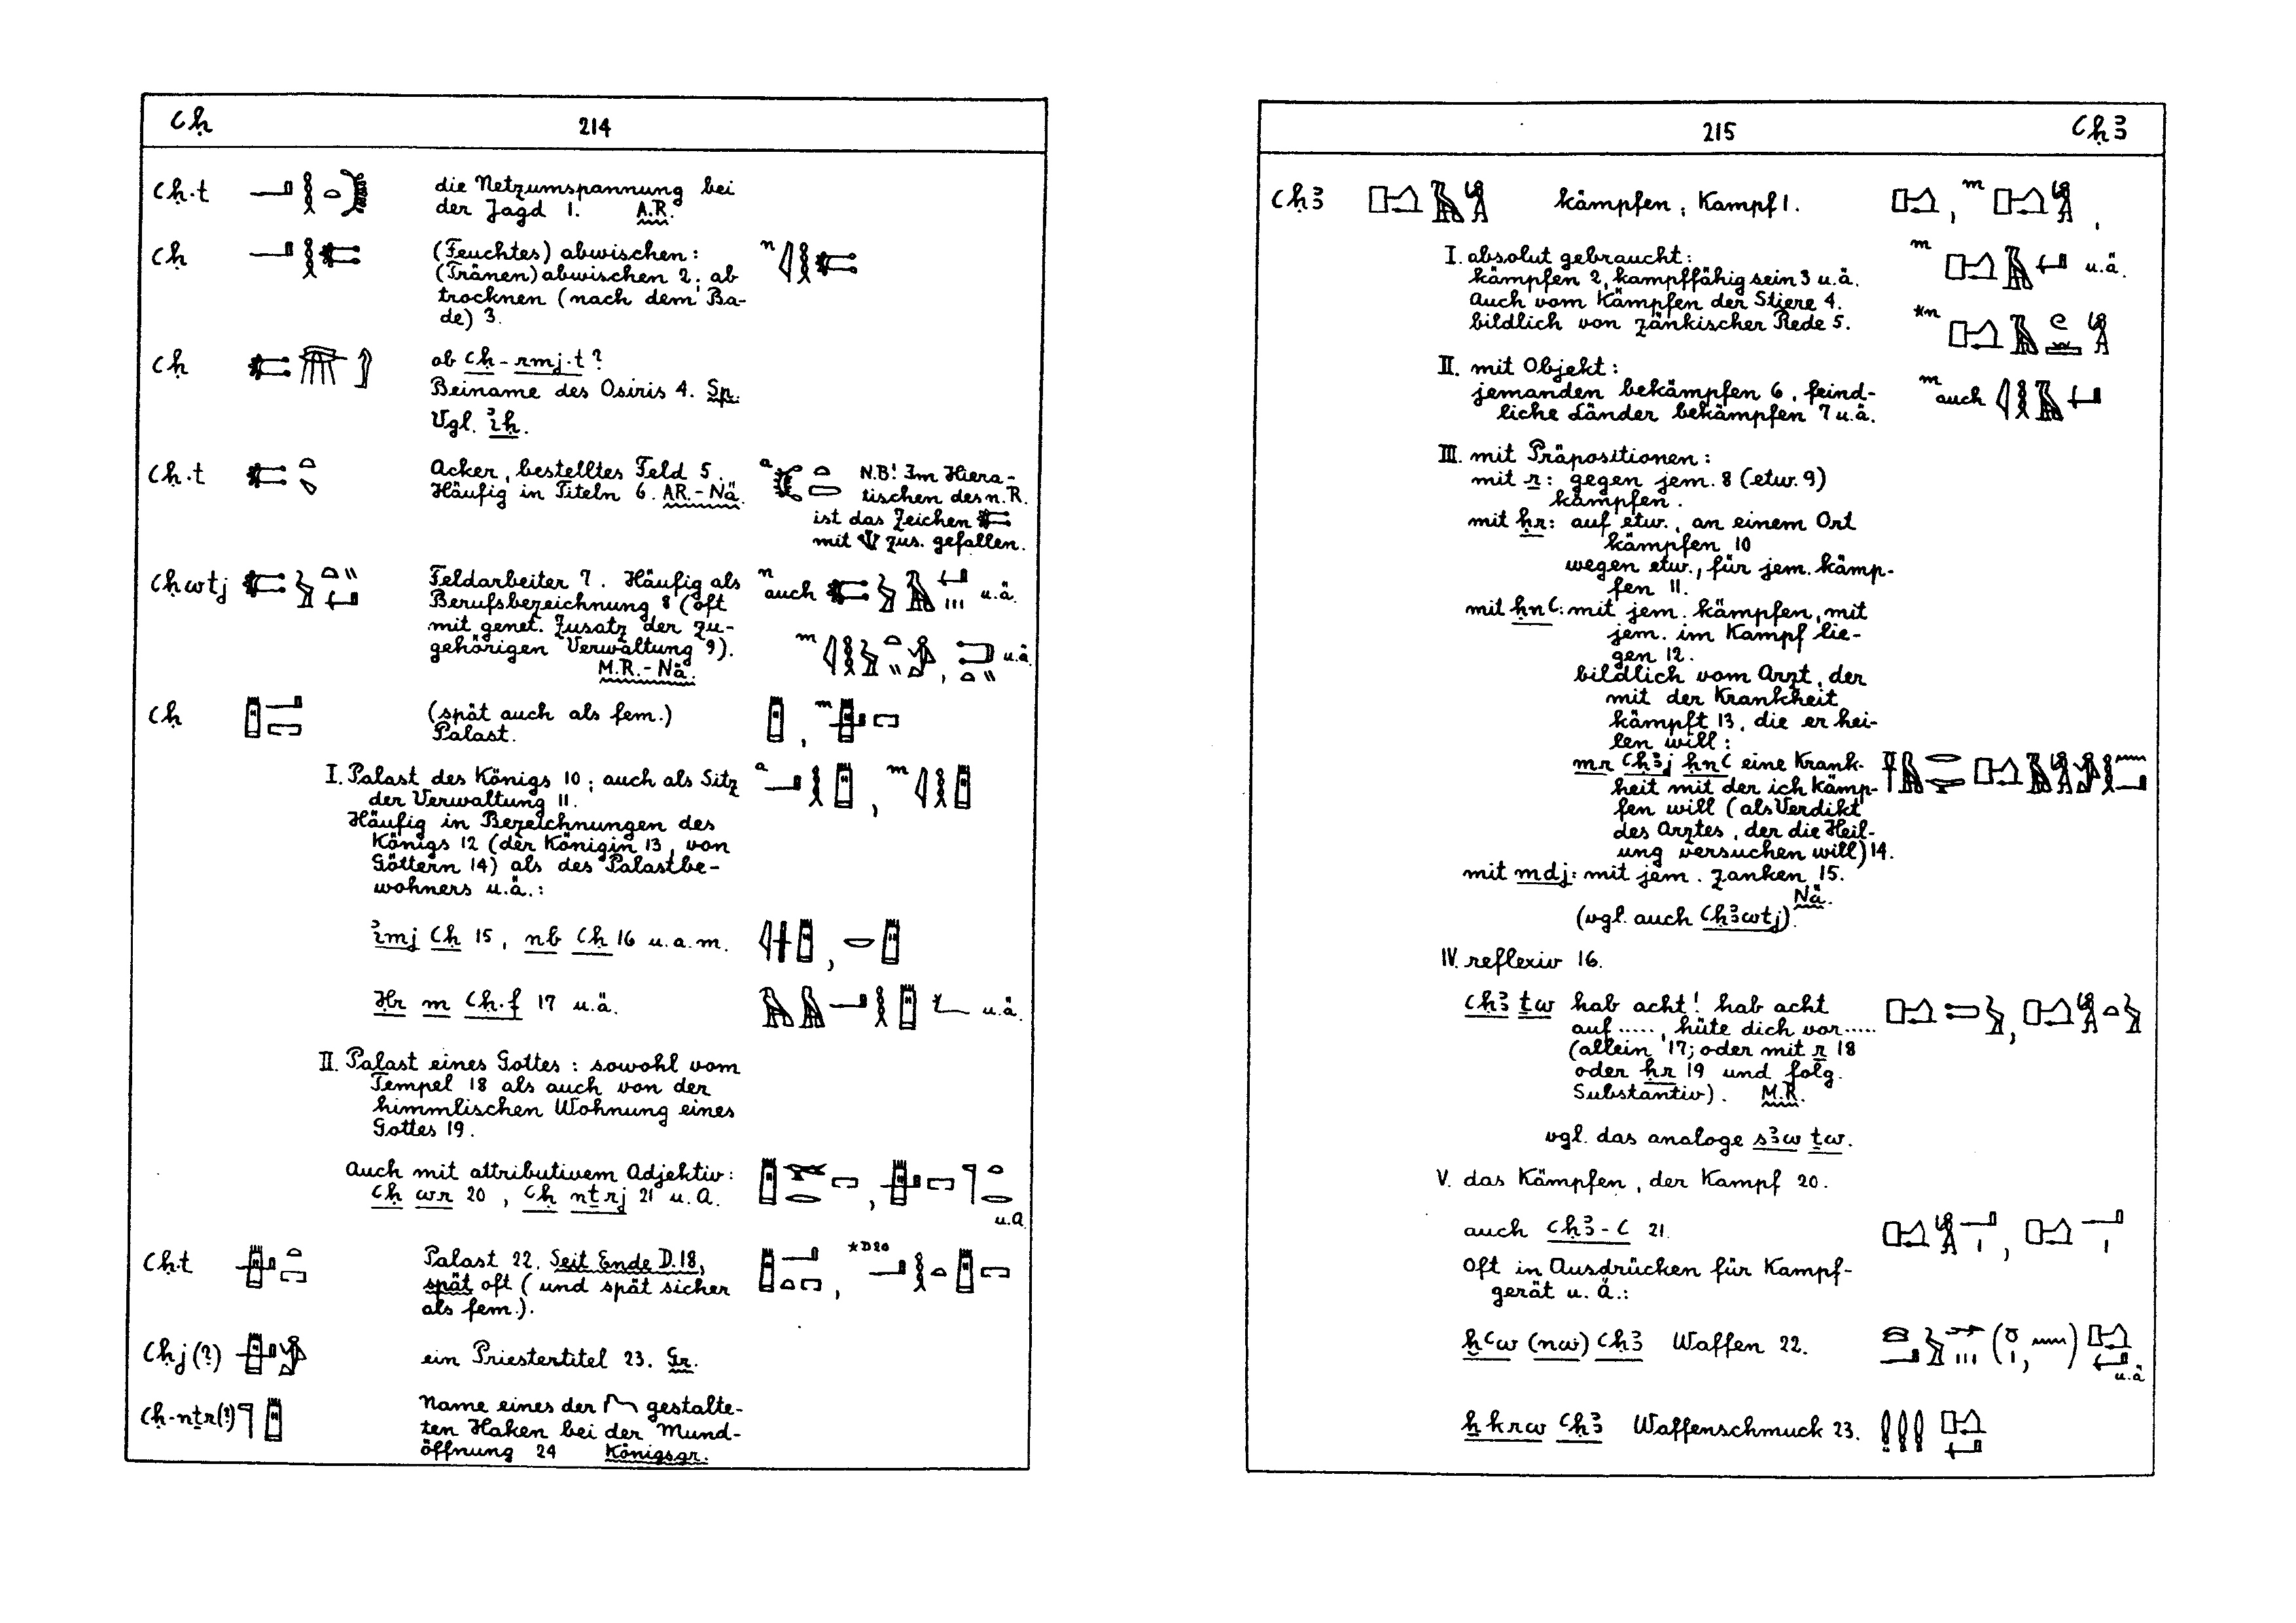 ꜥḥ 214
ꜥḥ.t die Netzumspannung bei
der Jagd 1. A.R.
ꜥḥ (Feuchtes) abwischen:
(Tränen) abwischen 2; ab
trocknen (nach dem Ba-
de) 3.
ꜥḥ ob ꜥḥ-rmj.t?
Beiname des Osiris 4. Sp.
Vgl. iḥ.
ꜥḥ.t Acker, bestelltes Feld 5. N.B! Im Hiera-
Häufig in Titeln 6. AR.-Nä. tischen des n.R.
ist das Zeichen
mit zus. gefallen.
ꜥḥwtj Feldarbeiter 7. Häufig als auch u.ä.
Berufsbezeichnung 8 (oft
mit genet. Zusatz der zu-
gehörigen Verwaltung 9). u.ä.
M.R.-Nä.
ꜥḥ (spät auch als fem.)
Palast.
I. Palast des Königs 10; auch als Sitz
der Verwaltung 11.
Häufig in Bezeichnungen des
Königs 12 (der Königin 13, von
Göttern 14) als des Palastbe-
wohners u.ä.:
imj ꜥḥ 15, nb ꜥḥ 16 u.a.m.
Ḥr m ꜥḥ.f 17 u.ä. u.ä.
II. Palast eines Gottes: sowohl vom
Tempel 18 als auch von der
himmlischen Wohnung eines
Gottes 19.
Auch mit attributivem Adjektiv:
ꜥḥ wr 20, ꜥḥ nṯrj 21 u.A.
u.A.
ꜥḥ.t Palast 22. Seit Ende D.18, *D20
spät oft (und spät sicher
als fem.).
ꜥḥj(?) ein Priestertitel 23. Gr.
ꜥḥ-nṯr(?) Name eines der gestalte-
ten Haken bei der Mund-
öffnung 24 Königsgr.
215 ꜥḥꜣ
ꜥḥꜣ kämpfen; Kampf 1.
I. absolut gebraucht:
kämpfen 2, kampffähig sein 3 u.ä. u.ä.
Auch vom Kämpfen der Stiere 4.
bildlich von zänkischer Rede 5.
II. mit Objekt:
jemanden bekämpfen 6, feind- auch
liche Länder bekämpfen 7 u.ä.
III. mit Präpositionen:
mit r: gegen jem. 8 (etw. 9)
kämpfen.
mit ḥr: auf etw., an einem Ort
kämpfen 10
wegen etw., für jem. kämp-
fen 11.
mit ḥnꜥ: mit jem. kämpfen, mit
jem. im Kampf lie-
gen 12.
bildlich vom Arzt, der
mit der Krankheit
kämpft 13, die er hei-
len will:
mr ꜥḥꜣj ḥnꜥ eine Krank-
heit mit der ich kämp-
fen will (als Verdikt
des Arztes, der die Heil-
ung versuchen will) 14.
mit mdj: mit jem. zanken 15.
Nä.
(vgl. auch ꜥḥꜣwtj).
IV. reflexiv 16.
ꜥḥꜣ ṯw hab acht! hab acht
auf ....., hüte dich vor .....
(allein 17; oder mit r 18
oder ḥr 19 und folg.
Substantiv). M.R.
vgl. das analoge sꜣw ṯw.
V. das Kämpfen, der Kampf 20.
auch ꜥḥꜣ-ꜥ 21.
Oft in Ausdrücken für Kampf-
gerät u. Ä.:
ḫꜥw (nw) ꜥḥꜣ Waffen 22.
u.ä
ẖkrw ꜥḥꜣ Waffenschmuck 23.